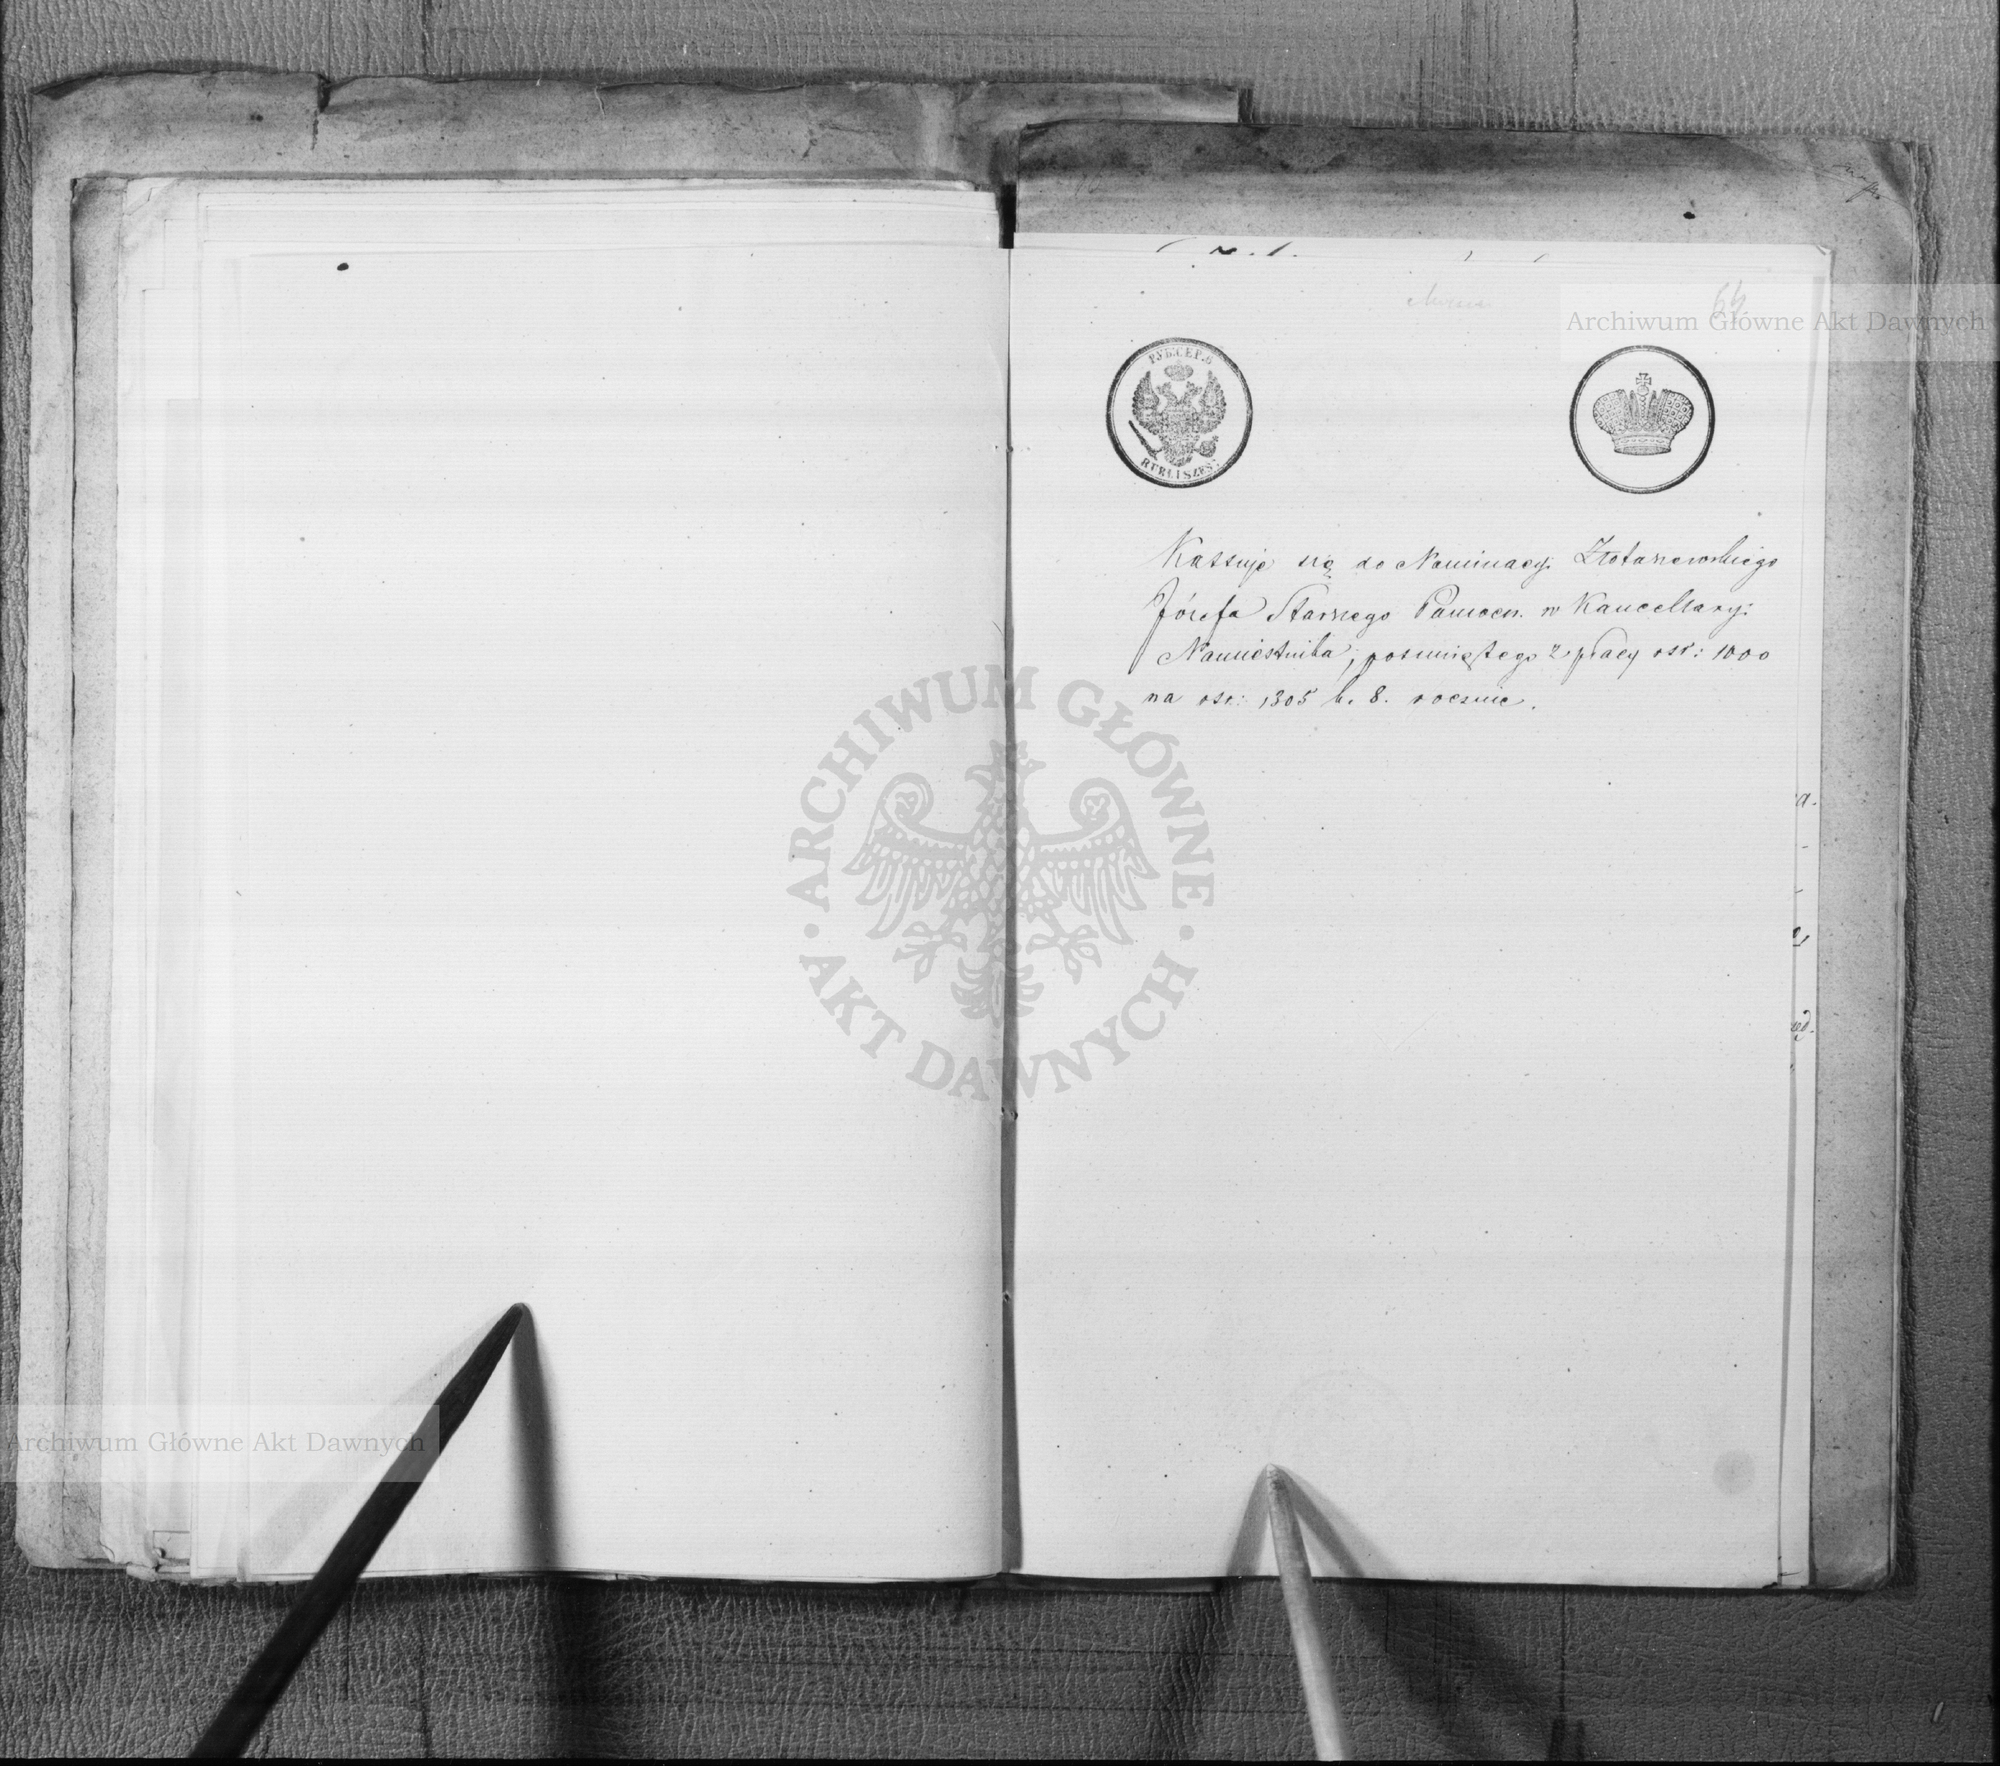 64
Archiwum Główne Akt Dawnych
РУБ.СЕР.6
RUBLI SZEŚĆ
Kassuje się do Nominacyi Złotarzewskiego
Józefa Starszego Pomocn. w Kancellaryi
Namiestnika, posuniętego z płacy rsr: 1000
na rsr: 1305 k. 8. rocznie.
ARCHIWUM GŁÓWNE
AKT DAWNYCH
Archiwum Główne Akt Dawnych